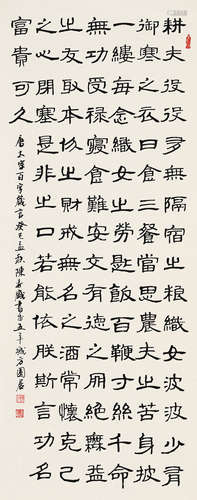 耕夫役役多無隔宿之粮織女波波少有
御寒之衣日食三餐當思農夫之苦身披
一縷每念織女之勞匙飯百鞭寸絲千命
無功受祿寢食難安交有德之朋絕無益
之友取本分之財戒無名之酒常懷克己
之心閉塞是非之口若能依朕斯言功名
富貴可久
唐太宗百字箴言癸巳孟秋陳盛書於五羊城方圓居